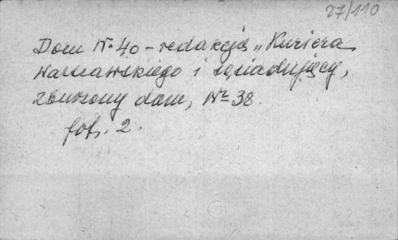 27/110
Dom № 40 - redakcja „Kuriera
Warszawskiego i sąsiadujący,
zburzony dom, № 38.
fot. 2.